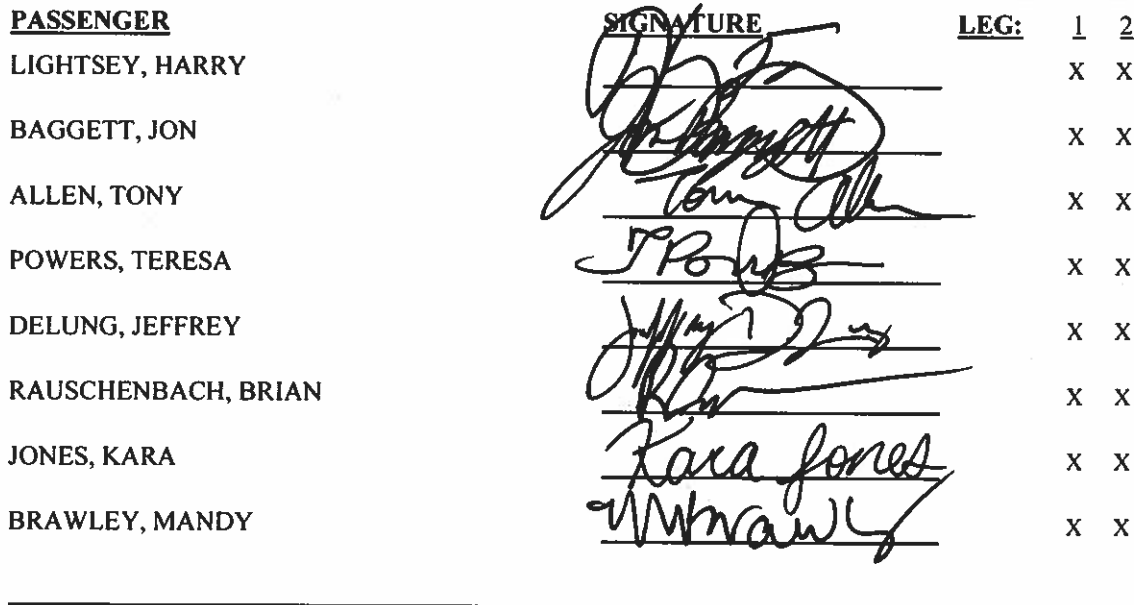 PASSENGER SIGNATURE LEG: 1 2
LIGHTSEY, HARRY X X
BAGGETT, JON Jon Baggett X X
ALLEN, TONY Tony Allen X X
POWERS, TERESA T Powers X X
DELUNG, JEFFREY X X
RAUSCHENBACH, BRIAN X X
JONES, KARA Kara Jones X X
BRAWLEY, MANDY MBrawley X X